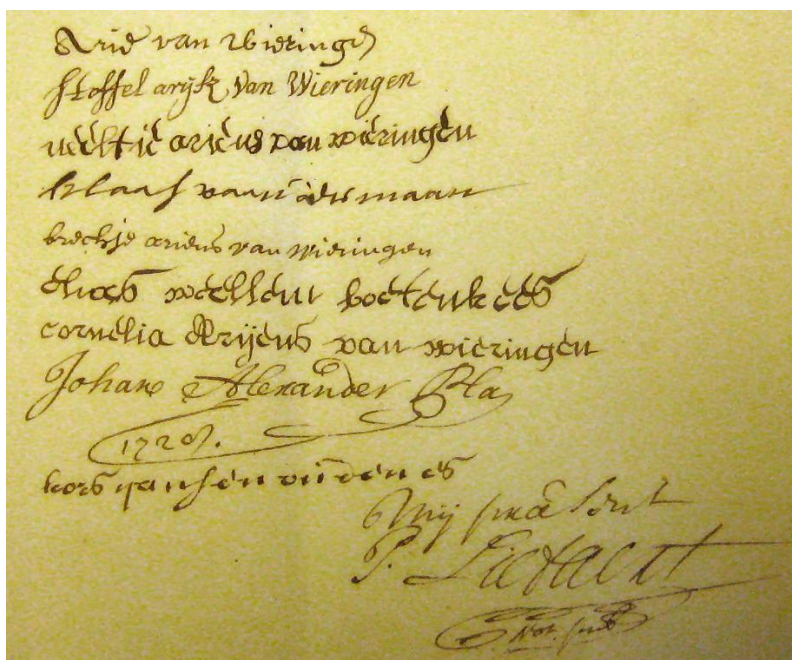 Arie van Wieringen
stoffel arijsz Van Wieringen
neeltie ariens van wieringen
klaas van der maan
brechje ariens van wieringen
elias weellem boetenkees
cornelia Arijens van wieringen
Johan Alexander Bla
1720.
kors jansen
Mij present
P. Liefaert
Not. pub.